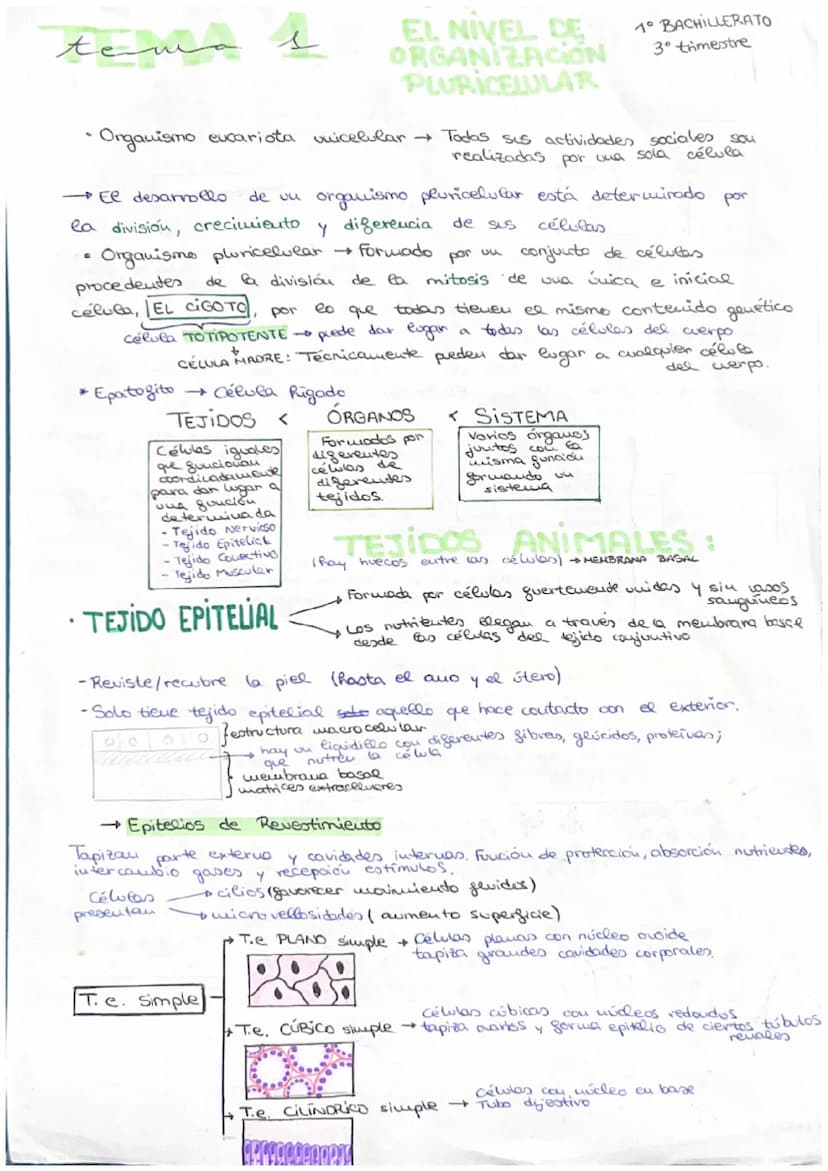 TEMA 1
tema 1
EL NIVEL DE
ORGANIZACIÓN
PLURICELULAR
1º BACHILLERATO
3º trimestre
· Organismo eucariota unicelular → Todas sus actividades sociales son
realizadas por una sola célula
→ El desarrollo de un organismo pluricelular está determinado por
la división, crecimiento y diferencia de sus células
• Organismo pluricelular → Formado por un conjunto de células
procedentes de la división de la mitosis de una única e inicial
célula, EL CIGOTO, por lo que todas tienen el mismo contenido genético
célula TOTIPOTENTE → puede dar lugar a todas las células del cuerpo
CÉLULA MADRE: Técnicamente pueden dar lugar a cualquier célula
del cuerpo.
* Epatofito → Célula Rigado
TEJIDOS < ÓRGANOS < SISTEMA
Células iguales
que funcionan
coordinadamente
para dar lugar a
una función
determinada
- Tejido Nervioso
- Tejido Epitelial
- Tejido Conectivo
- Tejido Muscular
Formados por
diferentes
células de
diferentes
tejidos.
Varios órganos
juntos con la
misma función
formando un
sistema
TEJIDOS ANIMALES:
(hay huecos entre las células) → MEMBRANA BASAL
· TEJIDO EPITELIAL
Formada por células fuertemente unidas y sin vasos
sanguíneos
Los nutrientes llegan a través de la membrana basal
desde las células del tejido conjuntivo
- Reviste/recubre la piel (hasta el ano y el útero)
- Solo tiene tejido epitelial solo aquello que hace contacto con el exterior.
estructura macrocelular
→ hay un liquidillo con diferentes fibras, glúcidos, proteínas;
que nutren la célula
membrana basal
matrices extracelulares
→ Epitelios de Revestimiento
Tapizan parte externa y cavidades internas. Función de protección, absorción nutrientes,
intercambio gases y recepción estímulos.
Células
presentan
→ cilios (favorecer movimiento fluidos)
→ microvellosidades (aumento superficie)
T.e. simple
→ T.e PLANO simple → Células planas con núcleo ovoide
tapiza grandes cavidades corporales.
→ T.e. CÚBICO simple → Células cúbicas con núcleos redondos
tapiza ovarios y forma epitelio de ciertos túbulos
renales
→ T.e. CILÍNDRICO simple → Células con núcleo en base
Tubo digestivo